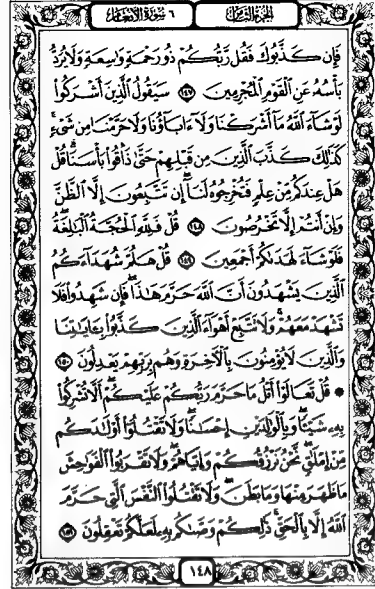 الجزء الثامن ٦ سورة الأنعام
فَإِن كَذَّبُوكَ فَقُل رَّبُّكُمْ ذُو رَحْمَةٍ وَاسِعَةٍ وَلَا يُرَدُّ
بَأْسُهُ عَنِ الْقَوْمِ الْمُجْرِمِينَ ١٤٧ سَيَقُولُ الَّذِينَ أَشْرَكُوا
لَوْ شَاءَ اللَّهُ مَا أَشْرَكْنَا وَلَا ءَابَاؤُنَا وَلَا حَرَّمْنَا مِن شَيْءٍ
كَذَٰلِكَ كَذَّبَ الَّذِينَ مِن قَبْلِهِمْ حَتَّىٰ ذَاقُوا بَأْسَنَا قُلْ
هَلْ عِندَكُم مِّنْ عِلْمٍ فَتُخْرِجُوهُ لَنَا إِن تَتَّبِعُونَ إِلَّا الظَّنَّ
وَإِنْ أَنتُمْ إِلَّا تَخْرُصُونَ ١٤٨ قُلْ فَلِلَّهِ الْحُجَّةُ الْبَالِغَةُ
فَلَوْ شَاءَ لَهَدَىٰكُمْ أَجْمَعِينَ ١٤٩ قُلْ هَلُمَّ شُهَدَاءَكُمُ
الَّذِينَ يَشْهَدُونَ أَنَّ اللَّهَ حَرَّمَ هَٰذَا فَإِن شَهِدُوا فَلَا
تَشْهَدْ مَعَهُمْ وَلَا تَتَّبِعْ أَهْوَاءَ الَّذِينَ كَذَّبُوا بِـَٔايَٰتِنَا
وَالَّذِينَ لَا يُؤْمِنُونَ بِالْآخِرَةِ وَهُم بِرَبِّهِمْ يَعْدِلُونَ ١٥٠
۞ قُلْ تَعَالَوْا أَتْلُ مَا حَرَّمَ رَبُّكُمْ عَلَيْكُمْ أَلَّا تُشْرِكُوا
بِهِ شَيْـًٔا وَبِالْوَٰلِدَيْنِ إِحْسَٰنًا وَلَا تَقْتُلُوا أَوْلَٰدَكُم
مِّنْ إِمْلَٰقٍ نَّحْنُ نَرْزُقُكُمْ وَإِيَّاهُمْ وَلَا تَقْرَبُوا الْفَوَٰحِشَ
مَا ظَهَرَ مِنْهَا وَمَا بَطَنَ وَلَا تَقْتُلُوا النَّفْسَ الَّتِي حَرَّمَ
اللَّهُ إِلَّا بِالْحَقِّ ذَٰلِكُمْ وَصَّىٰكُم بِهِ لَعَلَّكُمْ تَعْقِلُونَ ١٥١
١٤٨